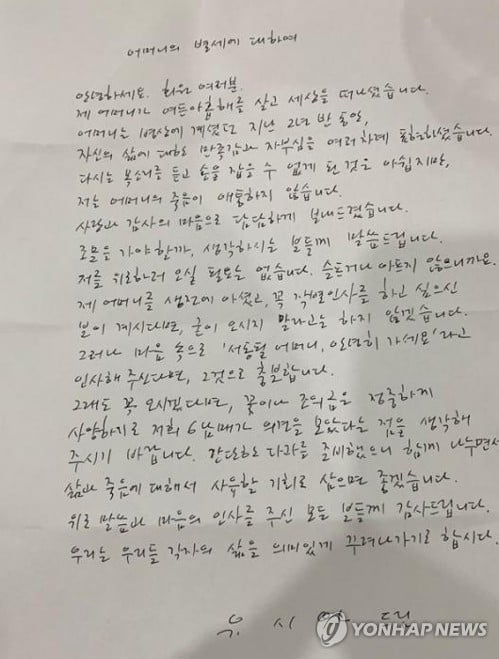 어머니의 별세에 대하여
안녕하세요. 회원 여러분.
제 어머니가 여든아홉해를 살고 세상을 떠나셨습니다.
어머니는 병상에 계셨던 지난 2년 반 동안,
자신의 삶에 대하여 만족감과 자부심을 여러차례 표현하셨습니다.
다시는 목소리를 듣고 손을 잡을 수 없게 된 것은 아쉽지만,
저는 어머니의 죽음이 애통하지 않습니다.
사랑과 감사의 마음으로 담담하게 보내드렸습니다.
조문을 가야할까, 생각하시는 분들께 말씀드립니다.
저를 위로하러 오실 필요는 없습니다. 슬프거나 아프지 않으니까요.
제 어머니를 생전에 아셨고, 꼭 작별인사를 하고 싶으신
분이 계시다면, 굳이 오시지 말라고는 하지 않겠습니다.
그러나 마음 속으로 '서동필 어머니, 안녕히 가세요'라고
인사해 주신다면, 그것으로 충분합니다.
그래도 꼭 오시겠다면, 꽃이나 조의금은 정중하게
사양하기로 저희 6남매가 의견을 모았다는 점을 생각해
주시기 바랍니다. 간단한 다과를 준비했으니 함께 나누면서
삶과 죽음에 대해서 사유할 기회로 삼으면 좋겠습니다.
위로 말씀과 마음의 인사를 주신 모든 분들께 감사드립니다.
우리는 우리들 각자의 삶을 의미있게 꾸려나가기로 합시다.
유 시 민 드림
YONHAP NEWS